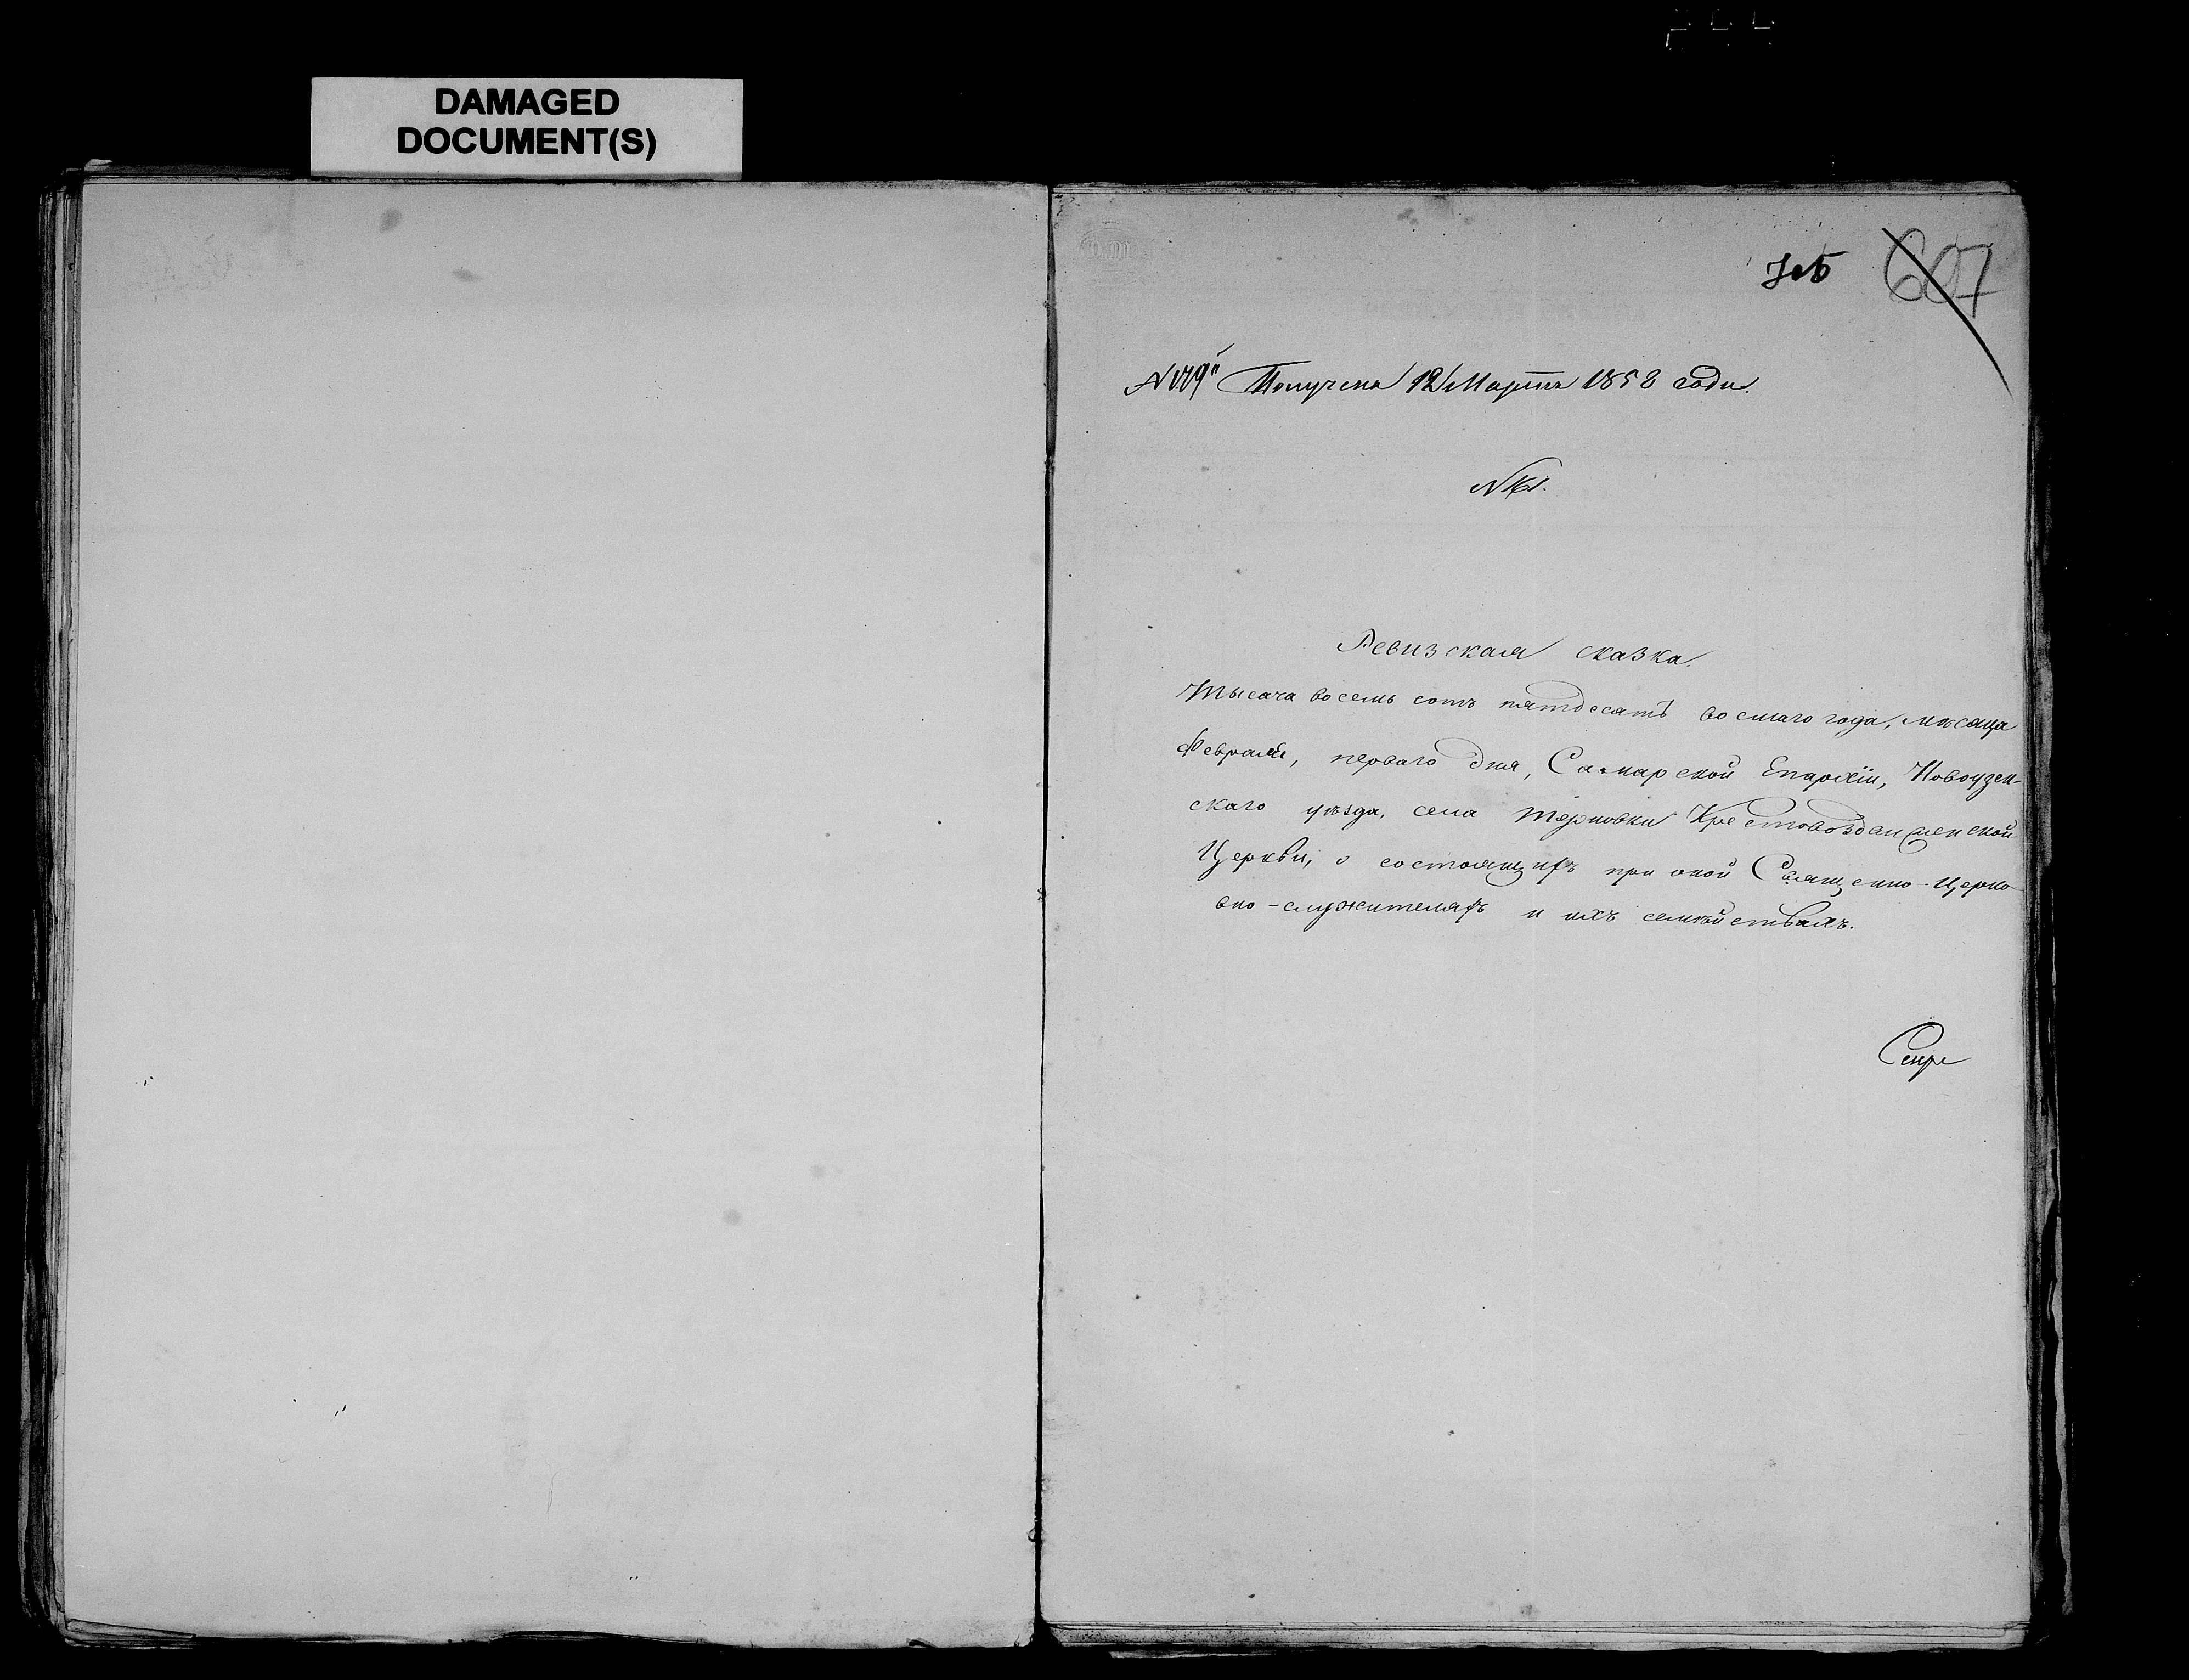 DAMAGED
DOCUMENT(S)
607
Получена 12 Марта 1858 года.
Ревизская сказка.
Тысяча восемь сотъ пятдесятъ восмаго года, мѣсяца
Февраля, перваго дня, Самарской Епархіи, Новоузен-
скаго уѣзда, села Терновки Крестовоздвиженской
Церкви, о состоящихъ при оной Священно-Церко
вно-служителяхъ и ихъ семѣйствахъ.